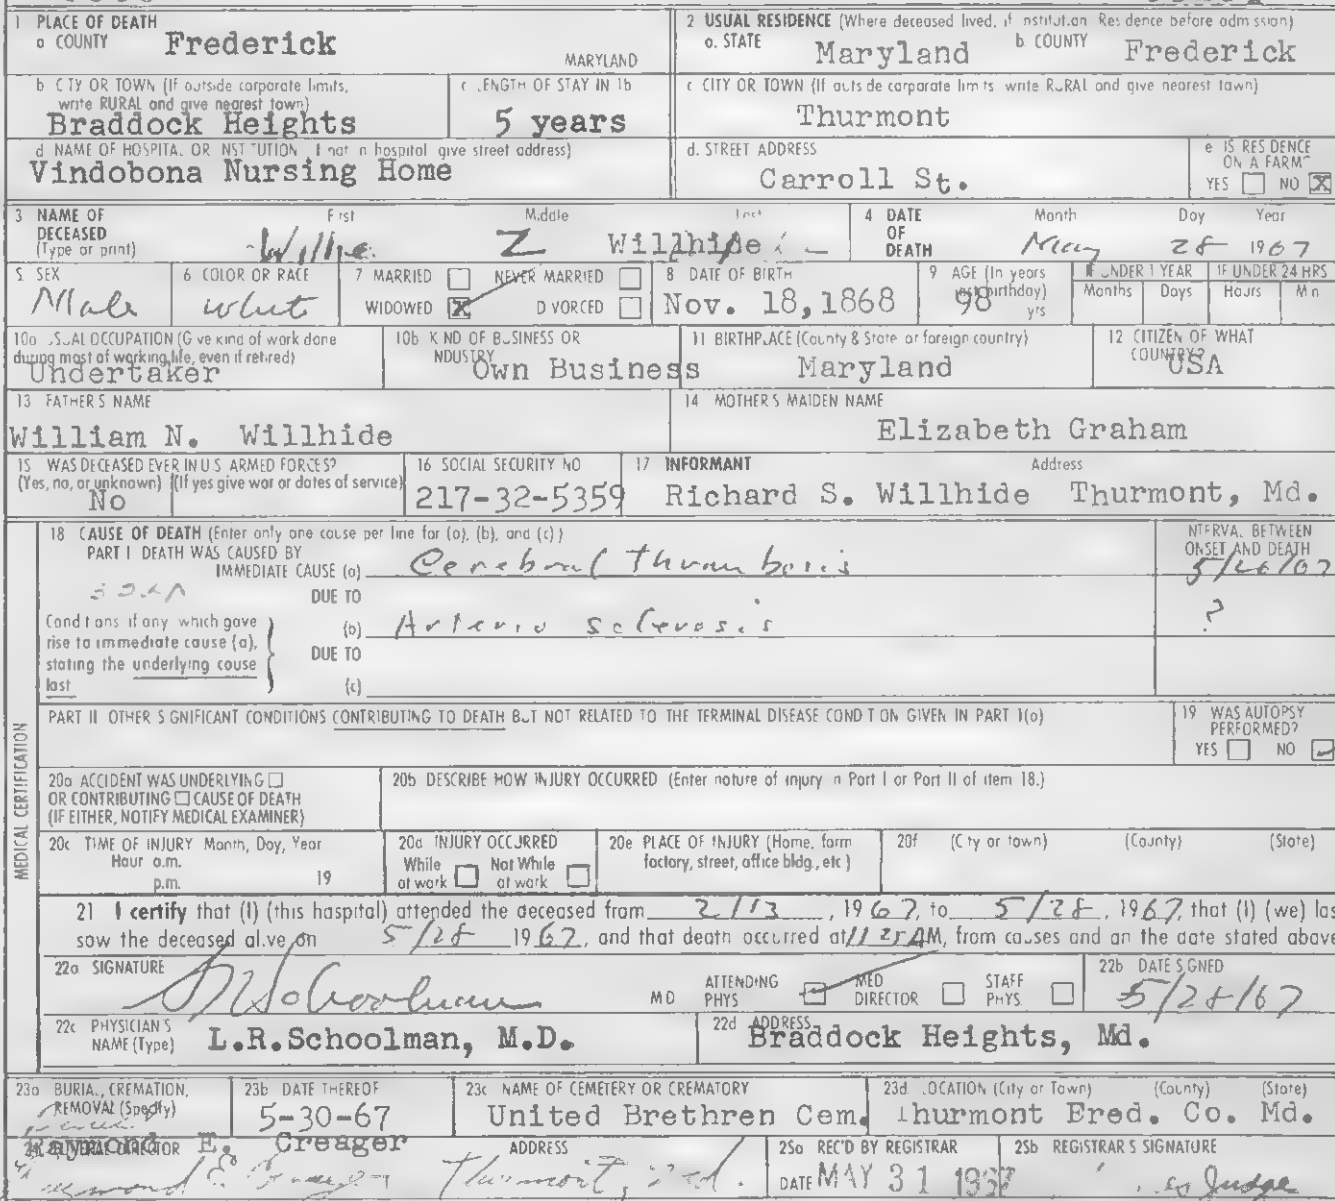 1 PLACE OF DEATH
a COUNTY Frederick MARYLAND
2 USUAL RESIDENCE (Where deceased lived, if nstitut.an Res dence before adm ssion)
a. STATE Maryland b. COUNTY Frederick
b C TY OR TOWN (If outside corporate limits, write RURAL and give nearest town)
Braddock Heights
c LENGTH OF STAY IN 1b
5 years
c CITY OR TOWN (If outs de corporate lim ts write RURAL and give nearest town)
Thurmont
d NAME OF HOSPITAL OR INSTITUTION (If not in hospital give street address)
Vindobona Nursing Home
d. STREET ADDRESS
Carroll St.
e IS RES DENCE ON A FARM?
YES NO X
3 NAME OF DECEASED (Type or print)
First Middle Last
Willie Z Willhide
4 DATE OF DEATH
Month Day Year
May 28 1967
5 SEX
Male
6 COLOR OR RACE
White
7 MARRIED NEVER MARRIED
WIDOWED X D VORCED
8 DATE OF BIRTH
Nov. 18,1868
9 AGE (In years last birthday)
98 yrs
IF UNDER 1 YEAR
Months Days
IF UNDER 24 HRS
Hours M n
10a USUAL OCCUPATION (G ve kind of work done during most of working life, even if retired)
Undertaker
10b K ND OF BUSINESS OR NDUSTRY
Own Business
11 BIRTHPLACE (County & State or foreign country)
Maryland
12 CITIZEN OF WHAT COUNTRY?
USA
13 FATHER S NAME
William N. Willhide
14 MOTHER S MAIDEN NAME
Elizabeth Graham
15 WAS DECEASED EVER IN U S ARMED FORCES?
(Yes, no, or unknown) (If yes give war or dates of service)
No
16 SOCIAL SECURITY NO
217-32-5359
17 INFORMANT Address
Richard S. Willhide Thurmont, Md.
MEDICAL CERTIFICATION
18 CAUSE OF DEATH (Enter only one cause per line for (a), (b), and (c) )
PART I DEATH WAS CAUSED BY
IMMEDIATE CAUSE (a) Cerebral Thrombosis
NTERVAL BETWEEN ONSET AND DEATH
5/26/67
DUE TO
Cond t ons if any which gave rise to immediate cause (a), stating the underlying cause last
(b) Arterio sclerosis ?
DUE TO
(c)
PART II OTHER S GNIFICANT CONDITIONS CONTRIBUTING TO DEATH BUT NOT RELATED TO THE TERMINAL DISEASE COND T ON GIVEN IN PART 1(a)
19 WAS AUTOPSY PERFORMED?
YES NO
20a ACCIDENT WAS UNDERLYING
OR CONTRIBUTING CAUSE OF DEATH
(IF EITHER, NOTIFY MEDICAL EXAMINER)
20b DESCRIBE HOW INJURY OCCURRED (Enter nature of injury n Part I or Part II of item 18.)
20c TIME OF INJURY Month, Day, Year
Hour a.m.
p.m. 19
20d INJURY OCCURRED
While at work Not While at work
20e PLACE OF INJURY (Home, farm factory, street, office bldg., etc )
20f (C ty or town) (County) (State)
21 I certify that (I) (this hospital) attended the deceased from 2/13, 1967, to 5/28, 1967, that (I) (we) las
saw the deceased alive on 5/28 1967, and that death occurred at 11 25 AM, from causes and on the date stated above
22a. SIGNATURE
LR Schoolman M D
ATTENDING PHYS MED DIRECTOR STAFF PHYS
22b DATE S GNED
5/28/67
22c PHYSICIAN S NAME (Type)
L.R.Schoolman, M.D.
22d ADDRESS
Braddock Heights, Md.
23a BURIAL, CREMATION, REMOVAL (Specify)
23b DATE THEREOF
5-30-67
23c NAME OF CEMETERY OR CREMATORY
United Brethren Cem.
23d LOCATION (City or Town) (County) (State)
Thurmont Fred. Co. Md.
24 FUNERAL DIRECTOR
Raymond E. Creager
Raymond E Creager
ADDRESS
Thurmont, Md.
25a REC'D BY REGISTRAR
DATE MAY 31 1967
25b REGISTRAR S SIGNATURE
Judge